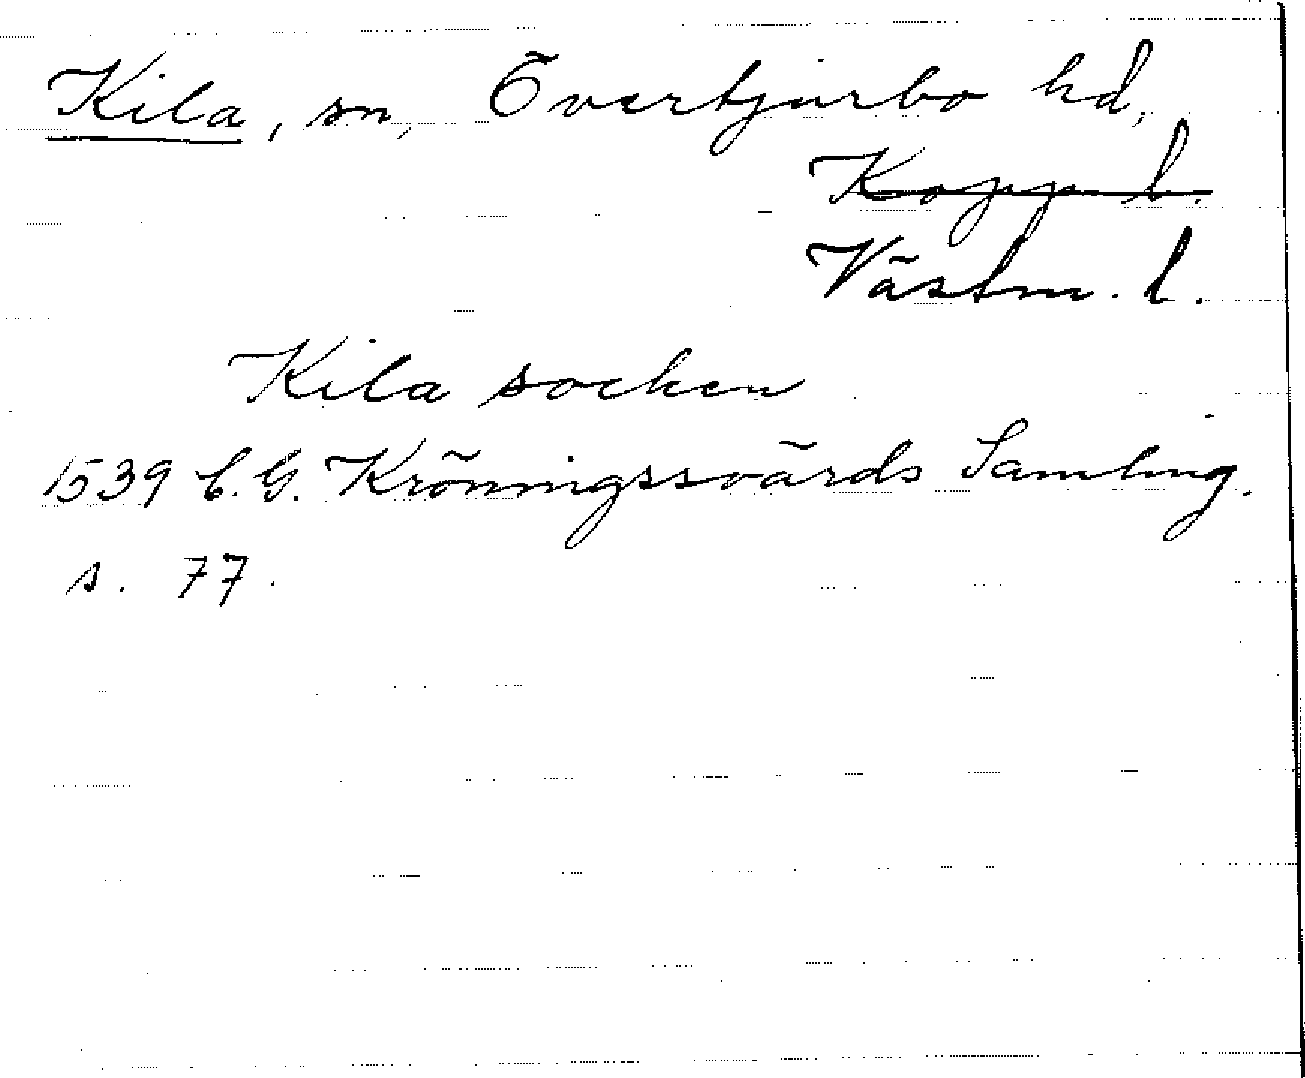 Kila, sn, Övertjurbo hd,
Kopp. l.
Västm. l.
Kila socken
1539 C. G. Kröningssvärds Samling.
s. 77.